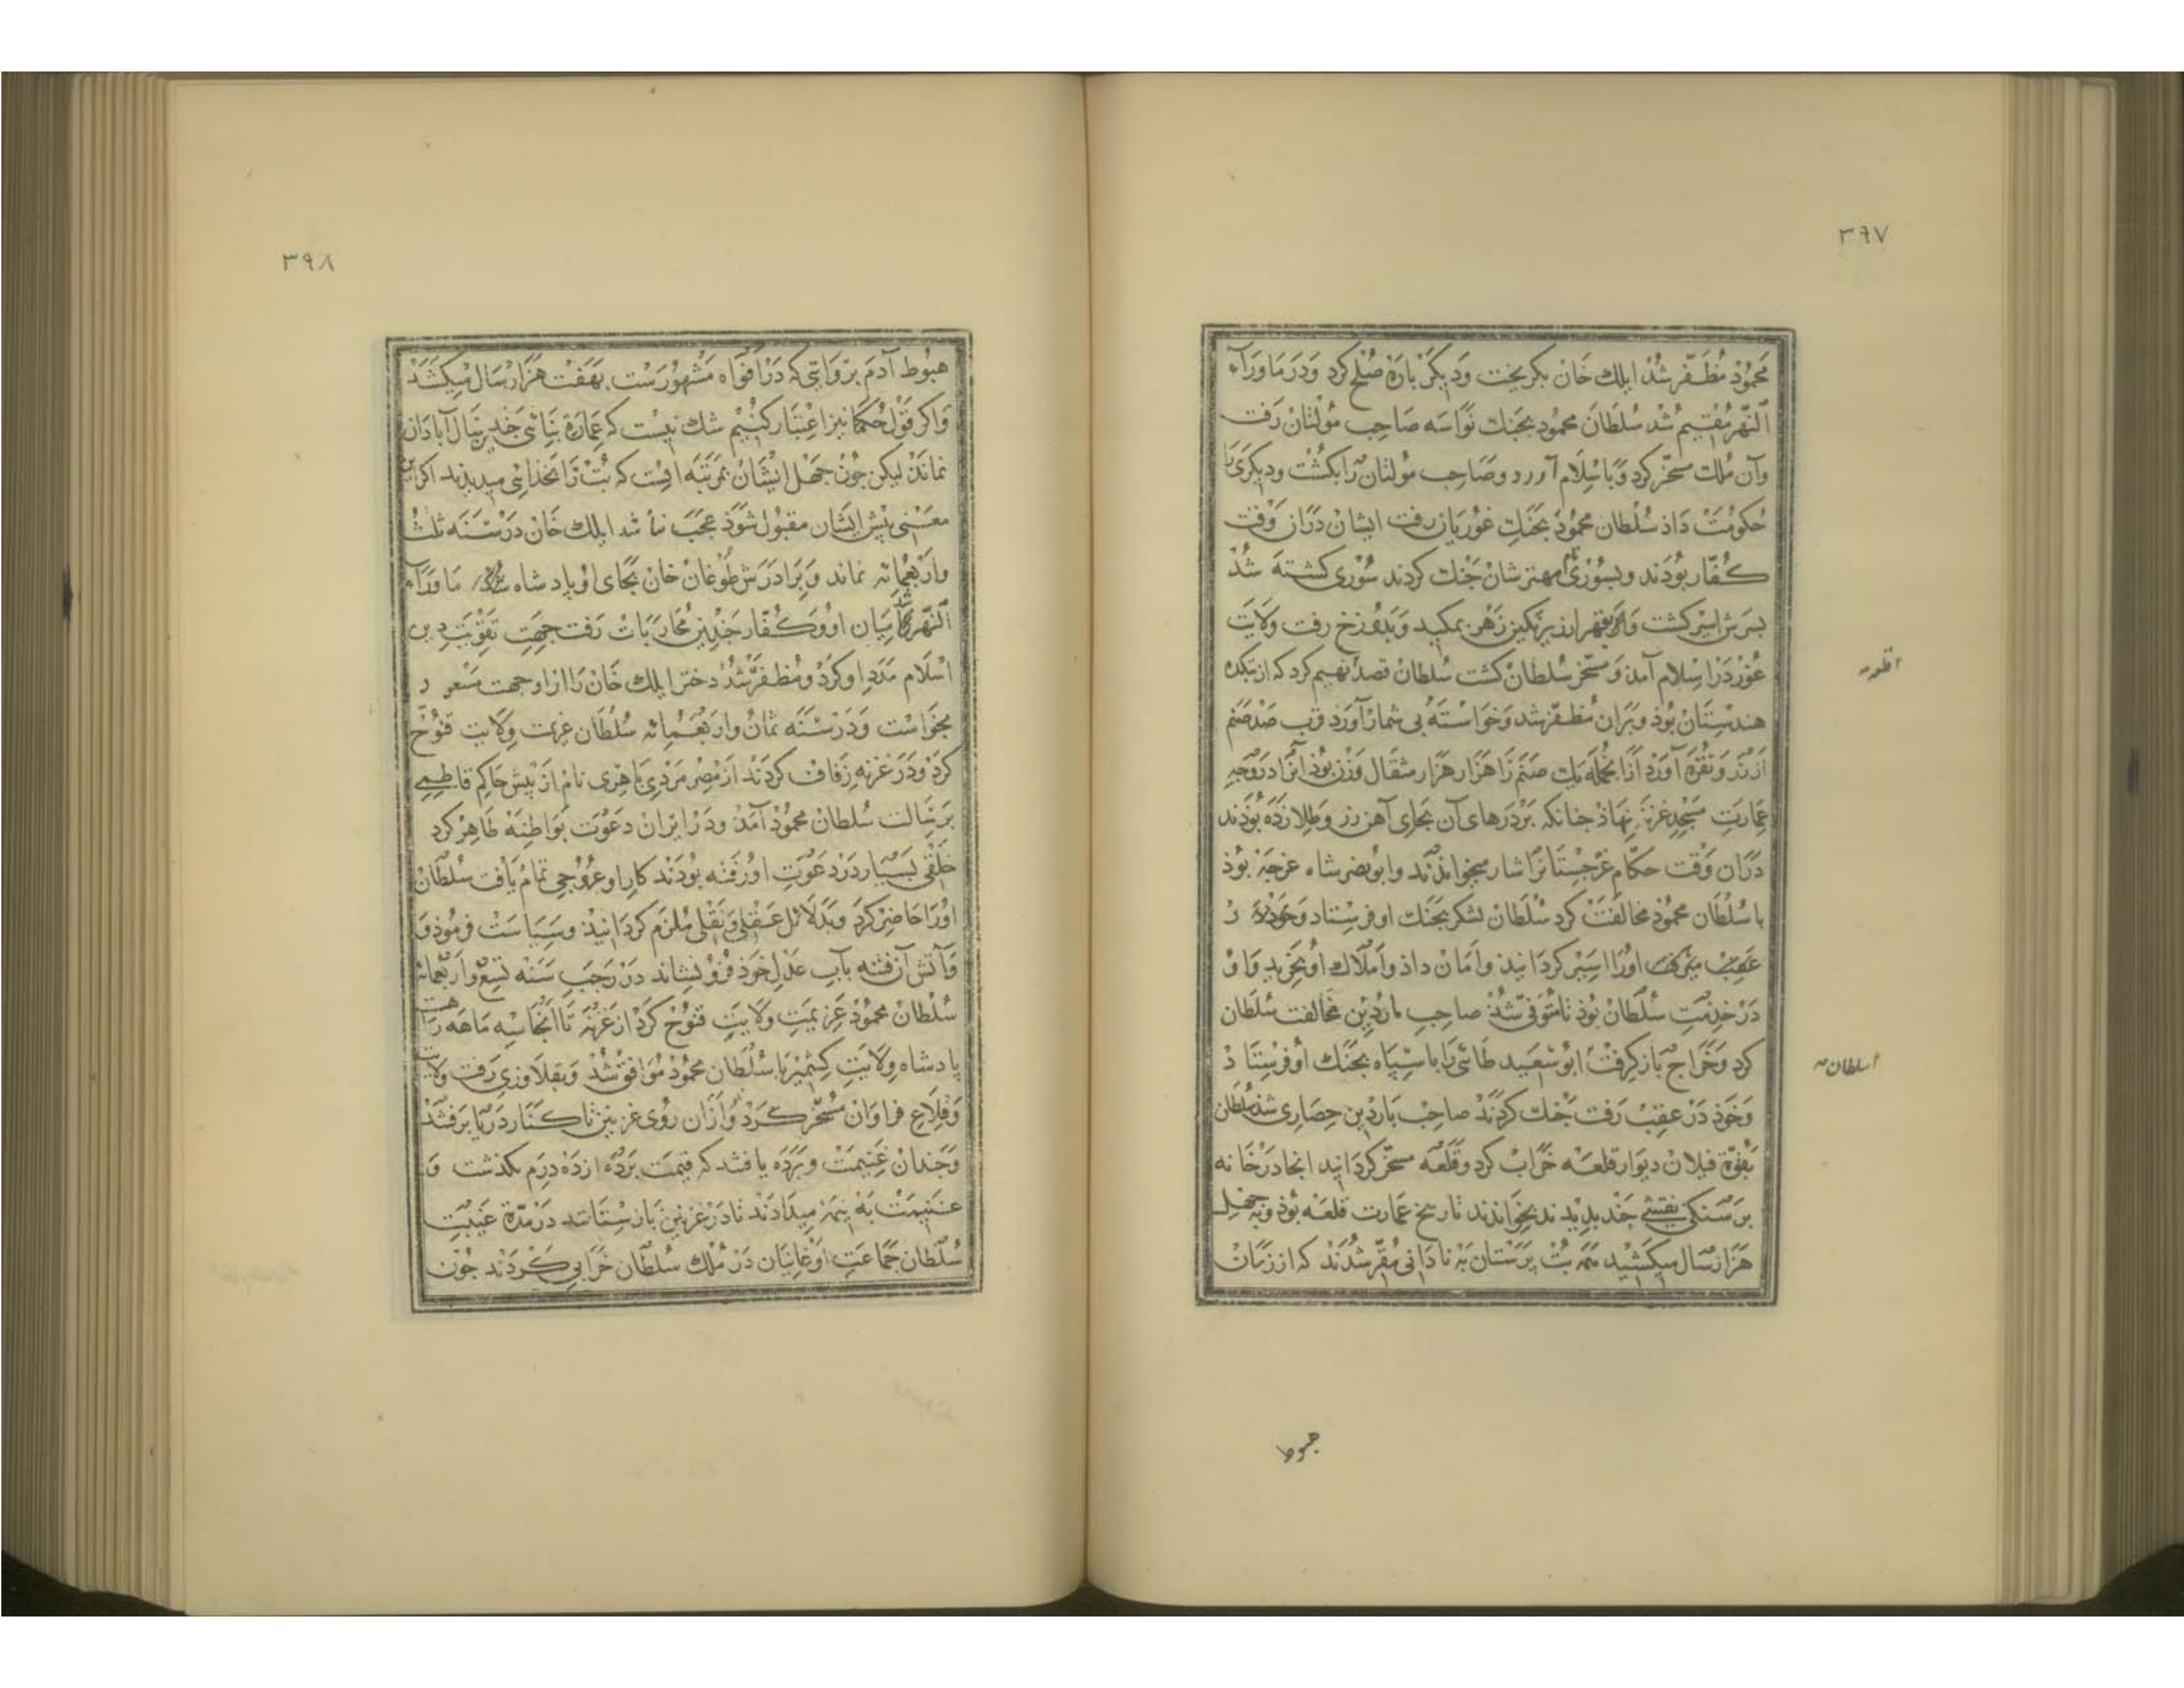 ۳۹۷
محمُوذ مُظَفّر شُذ ایلك خَان بکریخت وَدیکَرْ بارَه صُلح کرد وَدَر مَاوَرَآء
اَلنّهَر مُقیم شُذ سُلطَان محمُود بجَنك نَوَاسَه صَاحِب مُولتَان رَفت
وآن مُلك مسخّر کرد وَبا سِلَام آورد وصَاحِب مُولتان رَا بکشْت ودیکری رَا
حُکومَتْ دَاذ سُلطان محمُوذ بجَنكِ غوُریَان رفت ایشان دَرآن وَقت
کُفّار بوُدَند وبسُوری نام مهتر شان جَنك کردند سُوری کشته شُذ
بسَرش اسیر کشت وَاز قهر از زیر نکین زَهر بمکید وَبدُوزخ رفت ولَایَت
غُور دَر اسِلام آمذ وَ مسخّر سُلطانْ کشت سُلطان قصد بهیم کرد که از تبکده
هندسِتان بُوذ وَبَرآن مُظفّر شد وَخوَاستَه بی شمار آوَرد قرب صَد صَنم
اَز زَر وَ نُقرَه آوَرْد اَزآنجمُله یك صَنَم رَا هَزار هَزار مثقَال وَزن بُوذ آنرا دَر وَجه
عِمارت مَسجدِ غزنَه نهَاذ جنانکه بَر دَرهَای آن بجای آهن زر وطِلا زَدَه بوُذَند
دَرَآن وَقت حکّام غرجستَانرا شار میخواندَند وابُو نصر شاه غرجَه بُوذ
با سُلطَان محمُوذ مخالفَتْ کرد سُلطَان لشکر بجَنك او فرستاد وَخوذ دَر
عقب میرفت اورَا اسِیر کردَانیذ وامَان داذ وَاَملَاك او بخرید وَاوْ
دَر خذمَتِ سُلطَان بُوذ تا متوَفی شُذ صاحب ماردین مخالفت سُلطَان
کرد وَخَراج بَاز کرفتْ ابوُ سَعید طَائی رَا با سِپَاه بجَنك او فرستَاذ
وَخَوذ دَر عقبْ رَفت جَنك کردَند صاحِب ماردین حِصَاری شذ سُلطان
بَقوّة فیلان دیوَار قلعَه خرَابْ کرد وقلعَه مسخّر کردَانید انجا دَر خَانه
بَر سَنکی نقشی جَند بدیدند بخواندند تاریخ عمَارت قلعَه بُوذ وَبه جهل
هَزار سَال میکشید همَه بُت پَرستان بَه نادَانی مُقرّ شُدَند که از زمَانْ
اسلطان
۳۹۸
هبُوط آدَم برَوَایتی که دَر افوَاه مَشهورَست بهَفت هَزار سَال میکشَذْ
وَاکر قَول حُکمَا نیز اعتبَار کنُیم شك نیست که عمَارَة بنَائی جَندین سَال آبادَان
نمانَذ لیکن جُون جَهل ایشَان بمرَتبَه ایست که بُتْ رَا بخذائی میدیدند اکر این
معَنی پیش ایشان مقبُول شوَذ عجَبْ نبا شد ایلك خَان دَر سَنَه ثلث
وارَبعمِائه نماند وَبرَادَرش طوُغان خَان بجَای او پادشاه شد مَاوَرَآء
اَلنّهَر میَان او وَ کُفّار جَندین مُحَارَبَات رَفت جهَتِ تَقویَتِ دین
اسْلام مَدَد او کَردْ ومُظفّر شُذ دختر ایلك خَان رَا از او جهت مَسعُود
بخوَاست وَدَر سَنَه ثمَان وارَبعمِائه سُلطَان عزیمت ولَایت قنُوّج
کَرد وَدَر غزنه زفَاف کردَند اَز مصرَ مَردی تاهِرتی نام از پیش حَاکم فاطِمی
بَرسَالت سُلطان محمُوذ آمَذ وَدَر ایرَان دَعوَت بوَاطنَه ظَاهِر کرد
خَلقی بسیَار دَر دَعوَت او رَفته بُودَند کارِ او عرُوجی تمَام یَافت سُلطان
اوُرَا حَاضِر کرد وبدَلَائل عَقلی وَنَقلی مُلزم کردَانیذ وسیَاسَت فرمُوذ وَ
وَآتش آن فتنه بآب عَدل خوَذ فرُو نشاند دَر رَجَب سَنَه تسع وارَبعمَائه
سُلطان محمُوذ عَزیمَتِ ولَایَتِ قنوُّج کَرد از غزنه تا انجَا سه مَاهَه رَاهست
پادشاه ولَایَتِ کشمیر با سُلطَان محمُوذ مُوَافق شُذ وَبقلَاوزی رَفت ولایت
وَقِلَاعِ فرَاوَانْ مُسَخّر کَرد وَاَزآن رُوی غزنین تا کنَار دَریَا برَفتند
وَجَندان غنیمتْ وبَردَه یافتند که قیمت بَردَه از دَه دِرَم بکذشت وَ
غَنیمَتْ بَه نیمَه میدَادند تا دَر غزنین بازستانند دَر مُدّة غیبتِ
سُلطان جَمَاعَتِ اَوغانیَان دَر مُلك سُلطَان خرَابی کَردَند جُون